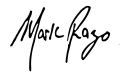 Mark Rago